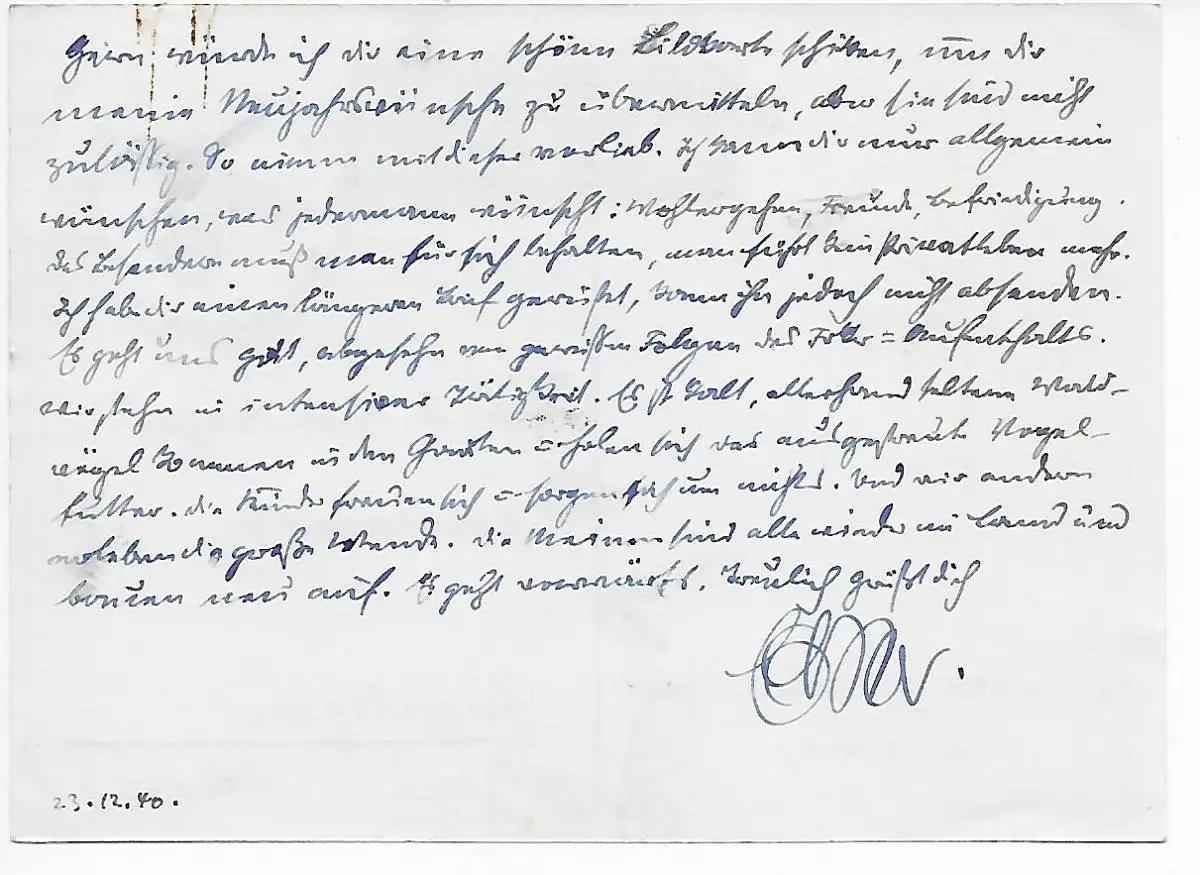 Gern würde ich dir eine schöne Bildkarte schicken, um dir
meine Neujahrswünsche zu übermitteln, aber sie sind nicht
zulässig. So nimm mit dieser vorlieb. Ich kann dir nur allgemein
wünschen, was jedermann wünscht: Wohlergehen, Freude, Befriedigung.
das Besondere muß man für sich behalten, man führt kein Privatleben mehr.
Ich habe dir einen längeren Brief gerüstet, kann ihn jedoch nicht absenden.
Es geht uns gut, abgesehn von gewissen Folgen des = Aufenthalts.
wir stehn in intensiver Tätigkeit. Es ist kalt, allerhand seltene Wald-
vögel kommen in den Garten u. holen sich das ausgestreute Vogel-
futter. die Kinder freuen sich u. sorgen sich um nichts. Und wir andern
erleben die große Wende. die Meinen sind alle wieder im Land und
bauen neu auf. Es geht vorwärts. Treulich grüßt dich
23.12.40.